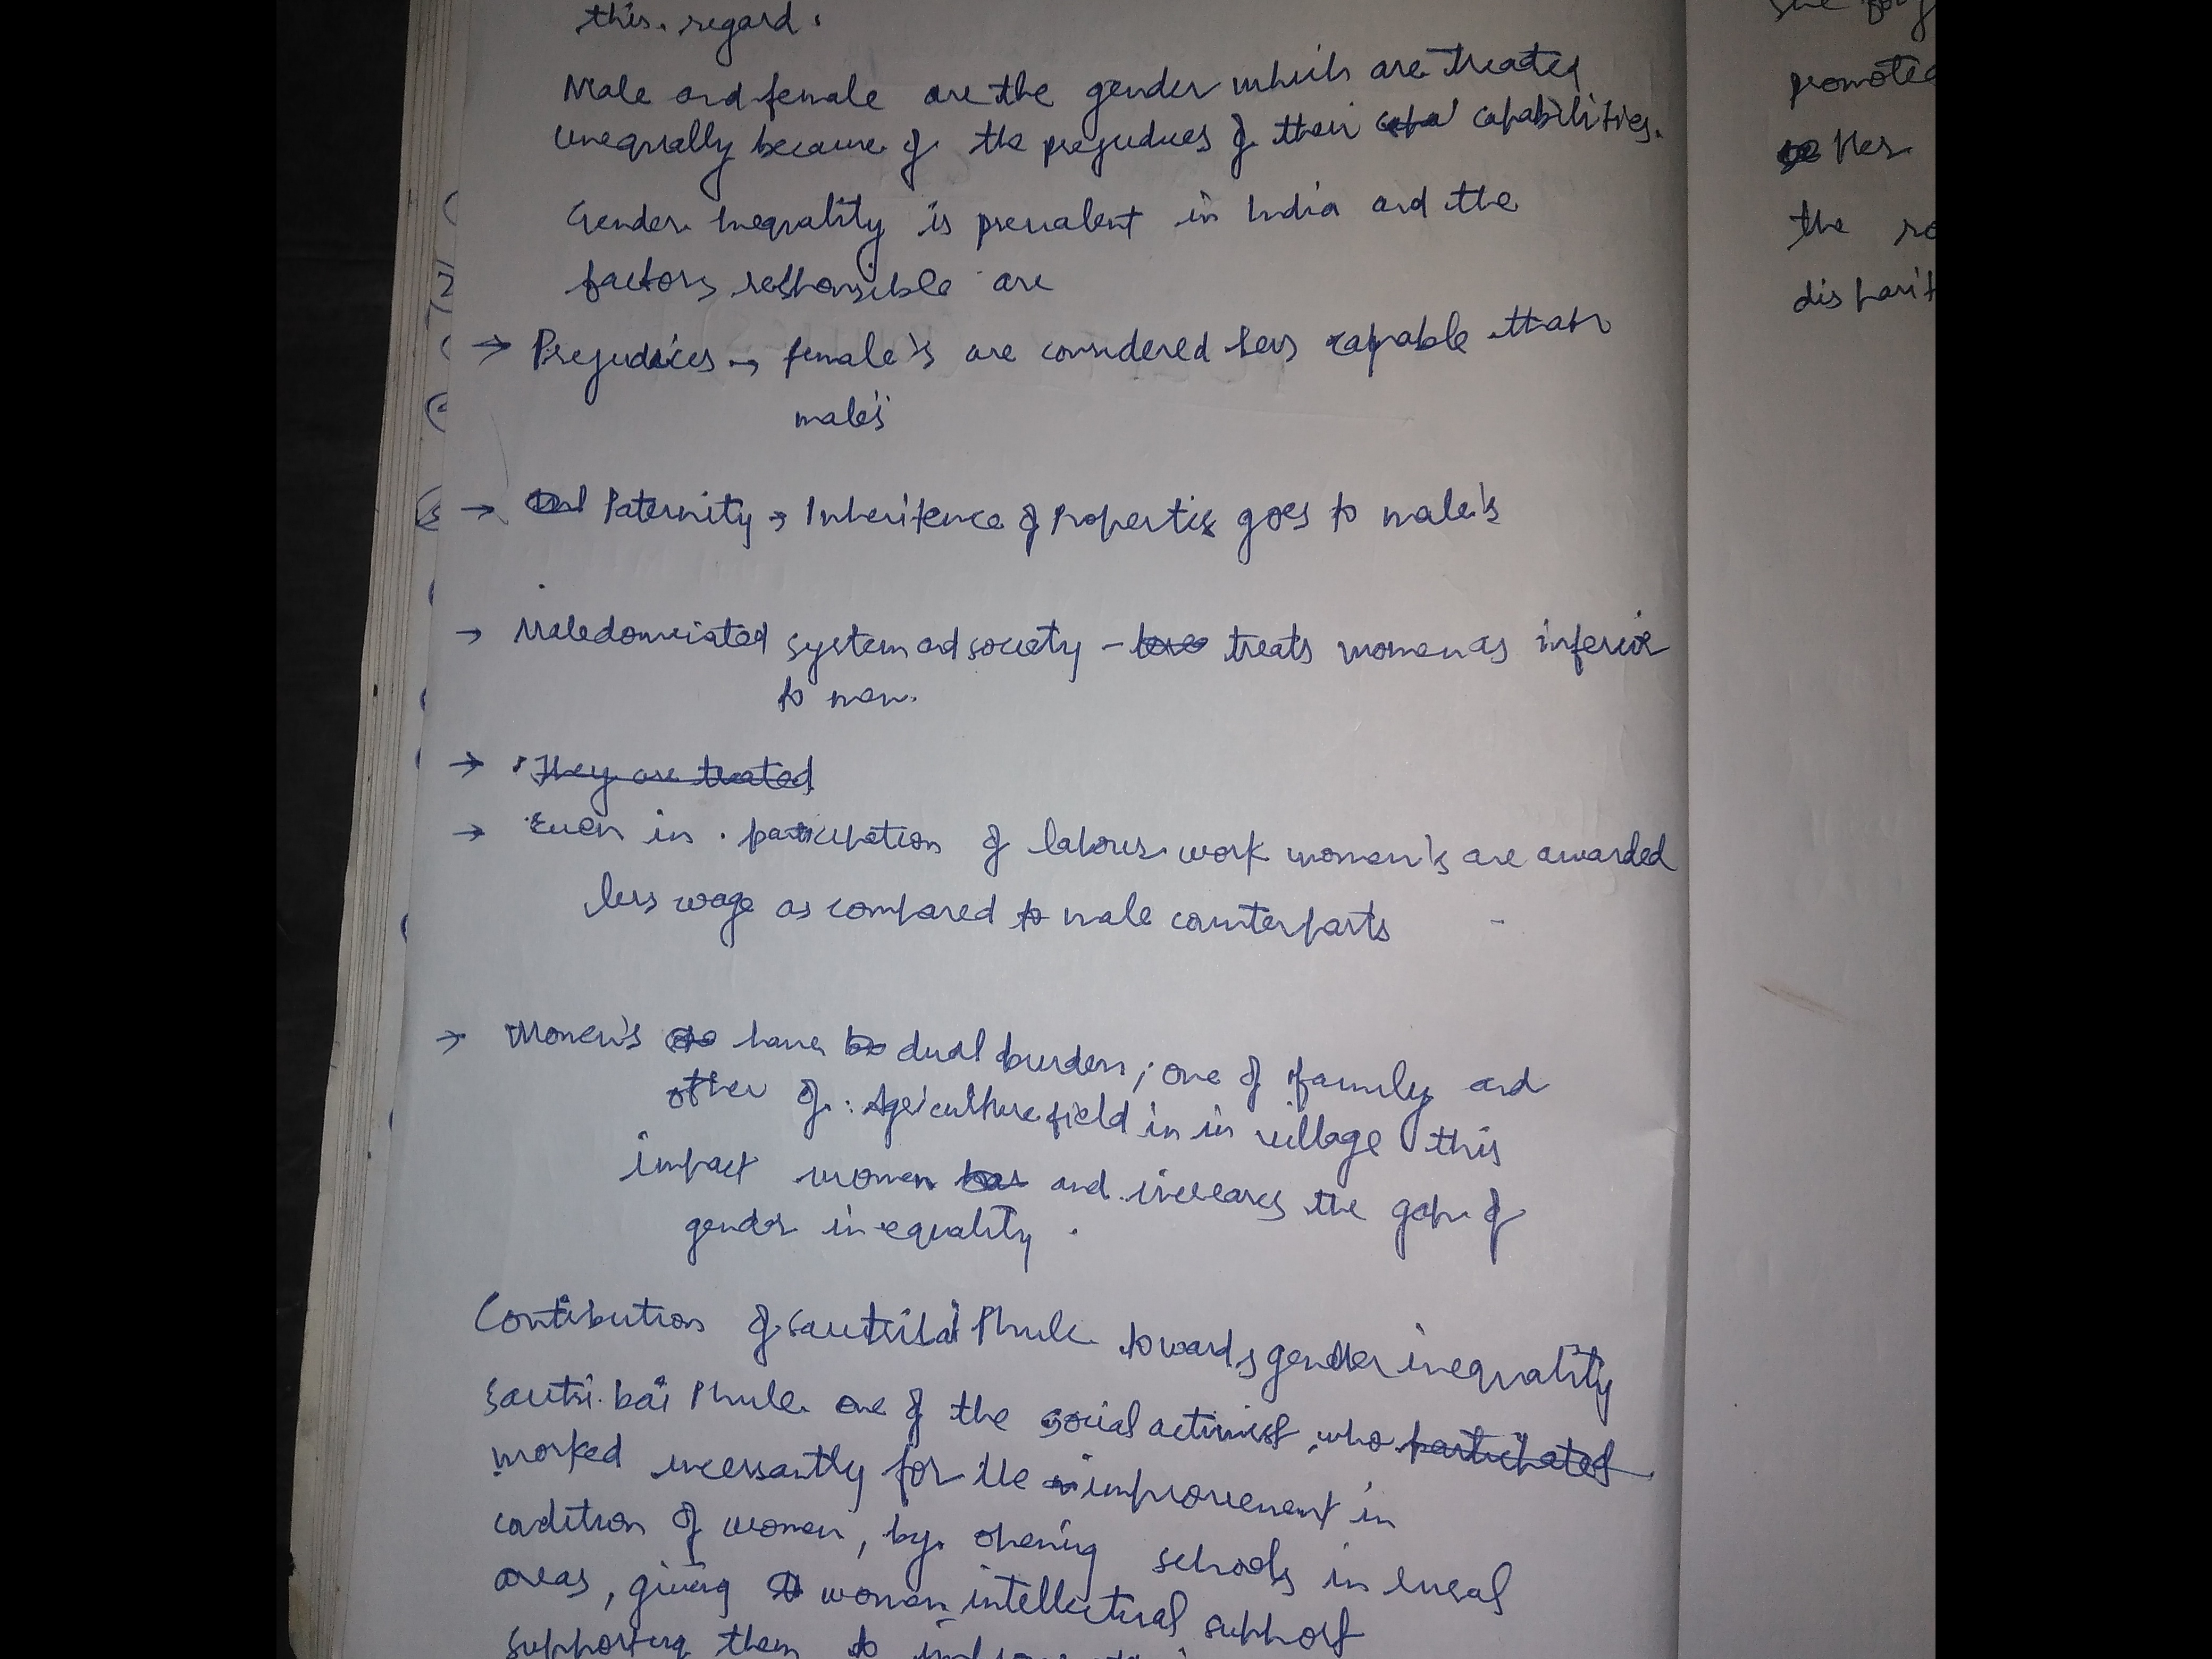 this. regard.
Male and female are the gender which are treated
unequally because of the prejudices of their capabilities.
Gender Inequality is prevalent in India and the
factors responsible are
→ Prejudices → female's are considered less capable than
male's
→ Paternity → Inheritence of Properties goes to male's
→ Maledominated system and society - treats women as inferior
to men.
→ They are treated
→ Even in participation of labour work women's are awarded
less wage as compared to male counterparts
→ Women's have dual burden; one of family and
other of Agriculture field in in village this
impact women and increases the gap of
gender inequality.
Contribution of Savitribai Phule towards gender inequality
Savitri bai Phule one of the social activist, who participated
worked incessantly for the improvement in
condition of women, by opening schools in rural
areas, giving women intellectual support
supporting them to
promoted
Her
the